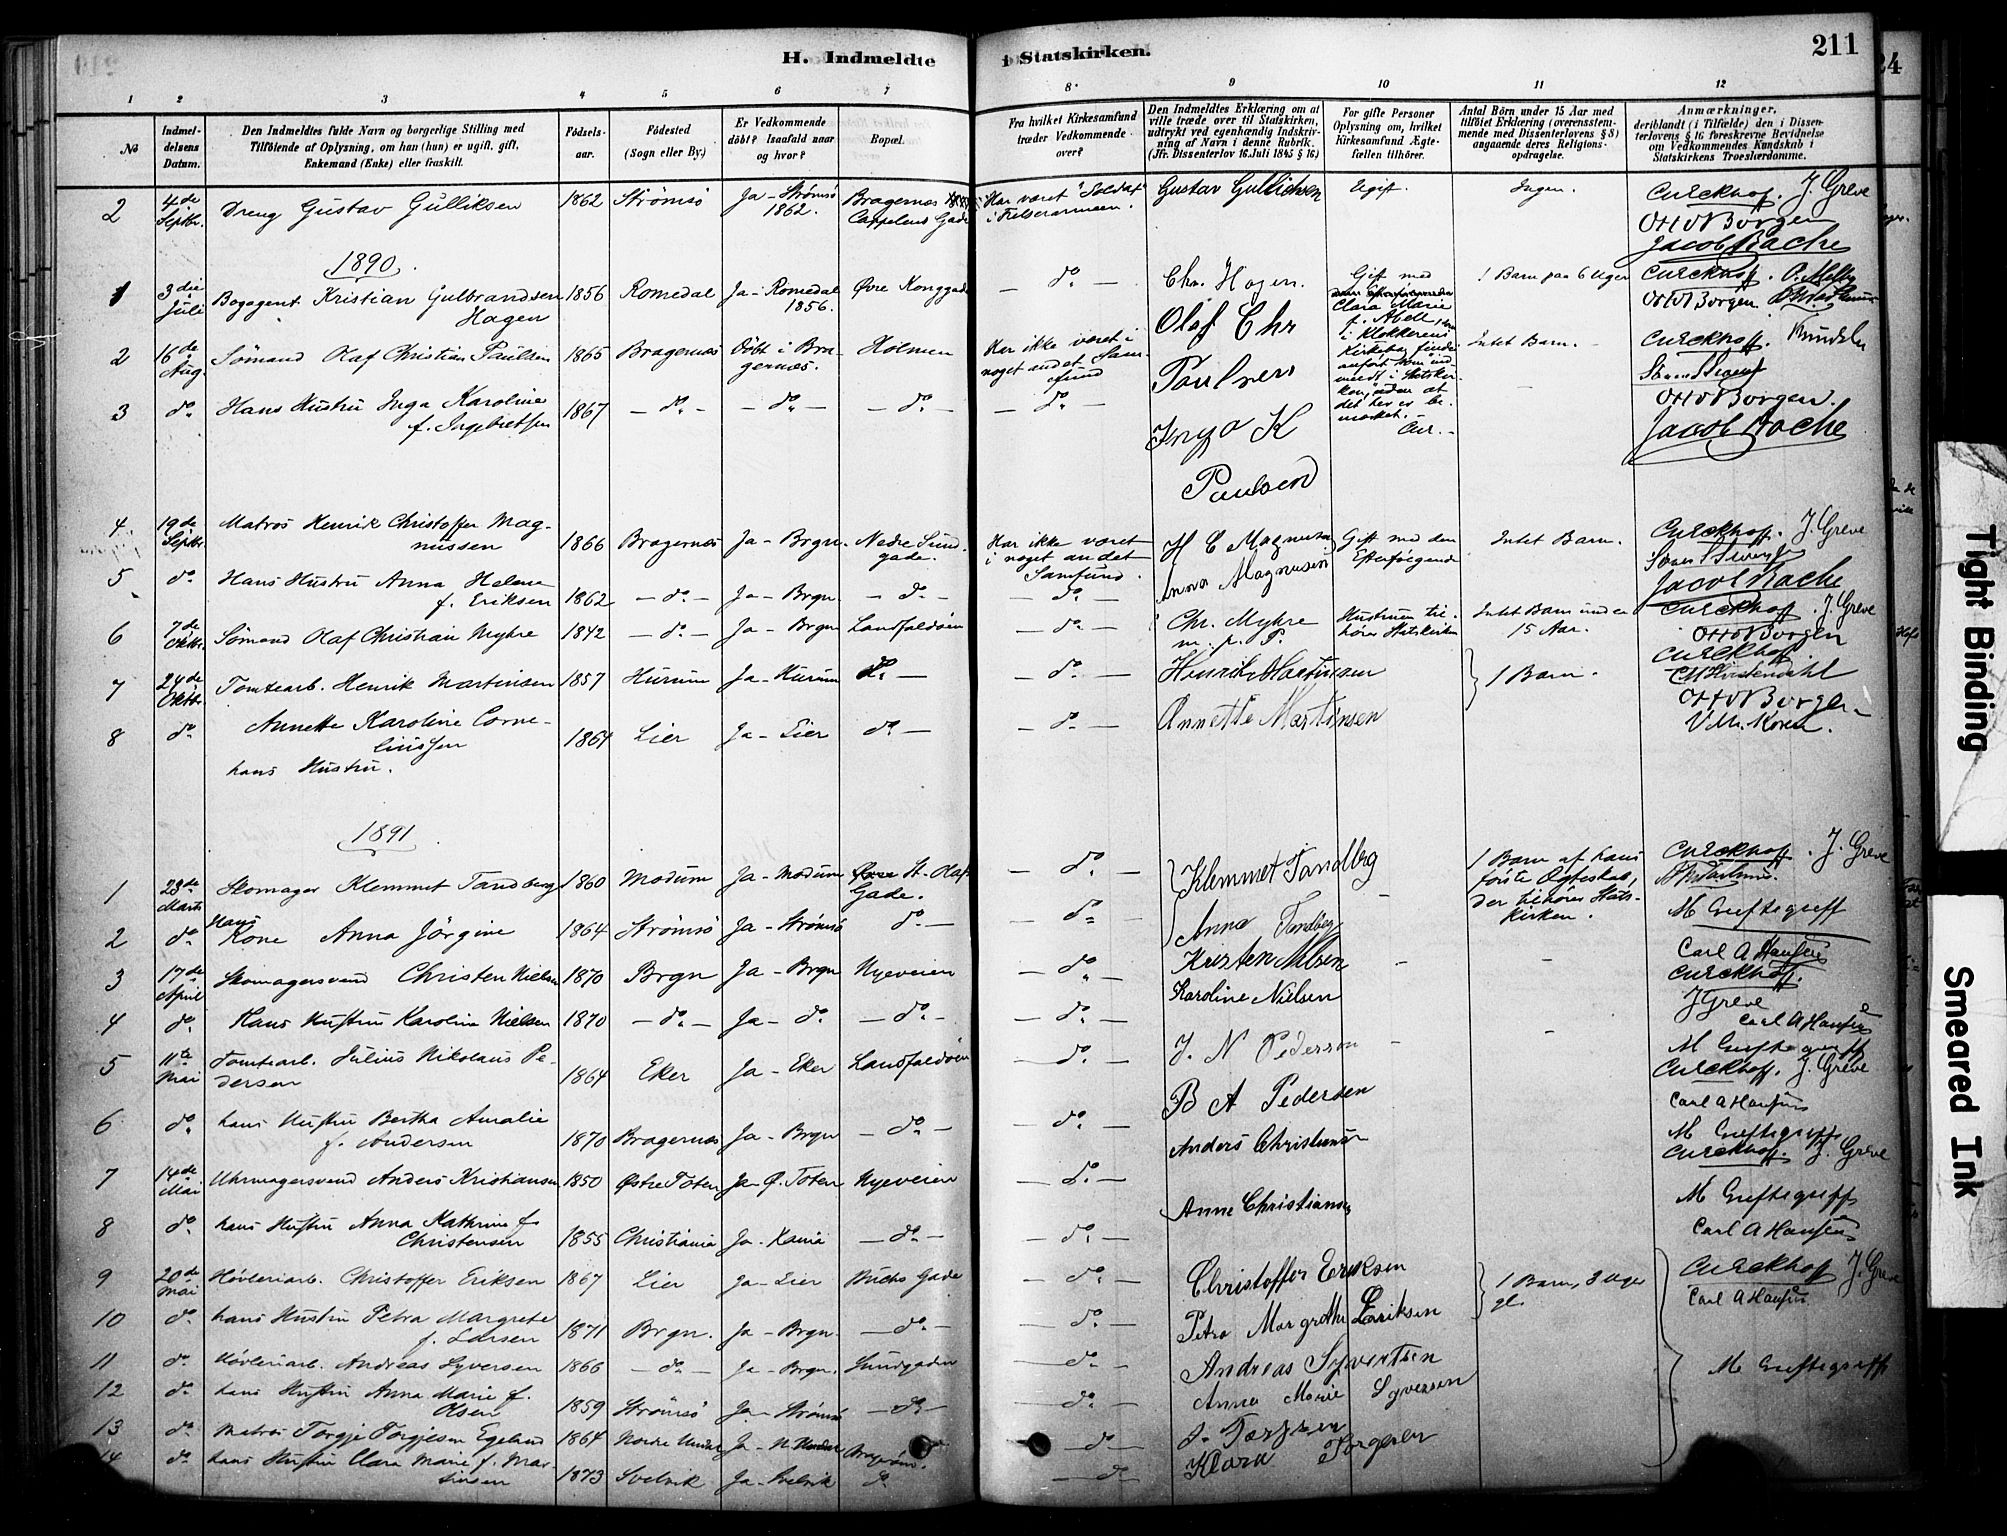 H. Indmeldte i Statskirken. 211
24
1 2 3 4 5 6 7 8 9 10 11 12
No
Indmel-
delsens
Datum.
Den Indmeldtes fulde Navn og borgerlige Stilling med
Tilföiende af Oplysning, om han (hun) er ugift, gift,
Enkemand (Enke) eller fraskilt.
Födsels-
aar.
Födested
(Sogn eller By.)
Er Vedkommende
döbt? Isaafald naar
og hvor?
Bopæl.
Fra hvilket Kirkesamfund
træder Vedkommende
over?
Den Indmeldtes Erklæring om at
ville træde over til Statskirken,
udtrykt ved egenhændig Indskriv-
ning af Navn i denne Rubrik.
(Jfr. Dissenterlov 16. Juli 1845 § 16)
For gifte Personer
Oplysning om, hvilket
Kirkesamfund Ægte-
fællen tilhörer.
Antal Börn under 15 Aar med
tilföiet Erklæring (overensstem-
mende med Dissenterlovens § 8)
angaaende deres Religions-
opdragelse.
Anmærkninger,
deriblandt (i Tilfælde) den i Dissen-
terlovens § 16 foreskrevne Bevidnelse
om Vedkommendes Kundskab i
Statskirkens Troeslærdomme.
2 4de Septbr. Dreng Gustav Gulliksen 1862 Strömsö Ja - Strömsö 1862. Bragernæs Cappelens Gade
Har været "Soldat" i Frelserarmeen. Gustav Gullichsen Ugift. Ingen. J. Greve
Otto Borgen
Jacob Bache
1890.
1 3die Juli Bogagent Kristian Gulbrandsen Hagen 1856 Romedal Ja - Romedal 1856. Øvre Konggade
do Chr. Hagen. Gift med Clara Marie f. Abell 1 Barn paa 6 Uger
Otto Borgen
2 16de Aug. Sömand Olaf Christian Paulsen 1865 Bragernæs Döbt i Bragernæs. Holmen
Har ikke været i noget andet Samfund Olaf Chr Paulsen Intet Barn.
i Klokkerens Kirkebog findes anfört som "indmeldt i Statskirken", uden at det her er bemærket.
3 do Hans Hustru Inga Karoline f. Ingebretsen 1867 do do do
do Inga K Paulsen
Otto Borgen.
Jacob Bache
4 19de Septbr. Matros Henrik Christoffer Magnussen 1866 Bragernæs Ja - Brgn. Nedre Sundgade.
Har ikke været i noget andet Samfund. H C Magnusen Gift med den Efterfölgende Intet Barn. J. Greve
5 do Hans Hustru Anna Helene f. Eriksen 1862 do Ja - Brgn. do
do Anna Magnusen
Jacob Bache
6 7de Oktbr. Sömand Olaf Christian Myhre 1842 do Ja - Brgn Landfaldöen
do Chr. Myhre m. p. P. Hustruen tilhörer Statskirken Intet Barn under 15 Aar. J. Greve
Otto Borgen
7 24de Oktbr. Tomtearb. Henrik Martinsen 1857 Hurum Ja - Hurum do
do Henrik Martinsen 1 Barn.
Otto Borgen
8 do Annette Karoline Corneliussen hans Hustru. 1864 Lier Ja - Lier do
do Annette Martinsen
1891
1 23de Marts Skomager Klemmet Tandberg 1860 Modum Ja - Modum St. Olafs Gade.
do Klemmet Tandberg 1 Barn af hans förste Ægteskab, der tilhörer Statskirken. J. Greve
2 do Hans Kone Anna Jörgine 1864 Strömsö Ja - Strömsö do
do Anna Tandberg
Carl A Hansen
3 17de April Skomagersvend Christen Nielsen 1870 Brgn Ja - Brgn Nyeveien
do Kristen Nilsen
4 do Hans Hustru Karoline Nielsen 1870 do Ja - do do
do Karoline Nielsen J Greve
Carl A Hansen
5 11te Mai Tomtearb. Julius Nikolaus Pedersen 1864 Eker Ja - Eker Landfaldöen
do J. N Pedersen J. Greve
6 do hans Hustru Bertha Amalie f. Andersen 1870 Bragernæs Ja - Brgn do
do B A Pedersen Carl A Hansen
7 14de Mai Uhrmagersvend Anders Kristiansen 1850 Østre Toten Ja Ø. Toten Nyeveien
do Anders Christiansen J. Greve
8 do hans Hustru Anna Kathrine f. Christensen 1855 Christiania Ja - Kania do
do Anne Christiansen Carl A Hansen
9 20de Mai Hövleriarb. Christoffer Eriksen 1867 Lier Ja - Lier Buchs Gade
do Christoffer Eriksen 1 Barn, 3 Uger gl. J. Greve
10 do hans Hustru Petra Margrete f. Larsen 1871 Brgn. Ja - Brgn. do
do Petra Margrethe Eriksen Carl A Hansen
11 do Hövleriarb. Andreas Syversen 1866 do Ja - Brgn. Sundgaden
do Andreas Syvertsen
12 do hans Hustru Anna Marie f. Olsen 1859 Strömsö Ja - Strömsö do
do Anna Marie Syversen
13 do Matros Torgje Torgjesen Egeland 1864 Ja
do
14 do hans Hustru Clara Marie f. Martinsen 1873 Svelvik Ja - Svelvik do
do Klara Torgersen
Tight Binding
Smeared Ink